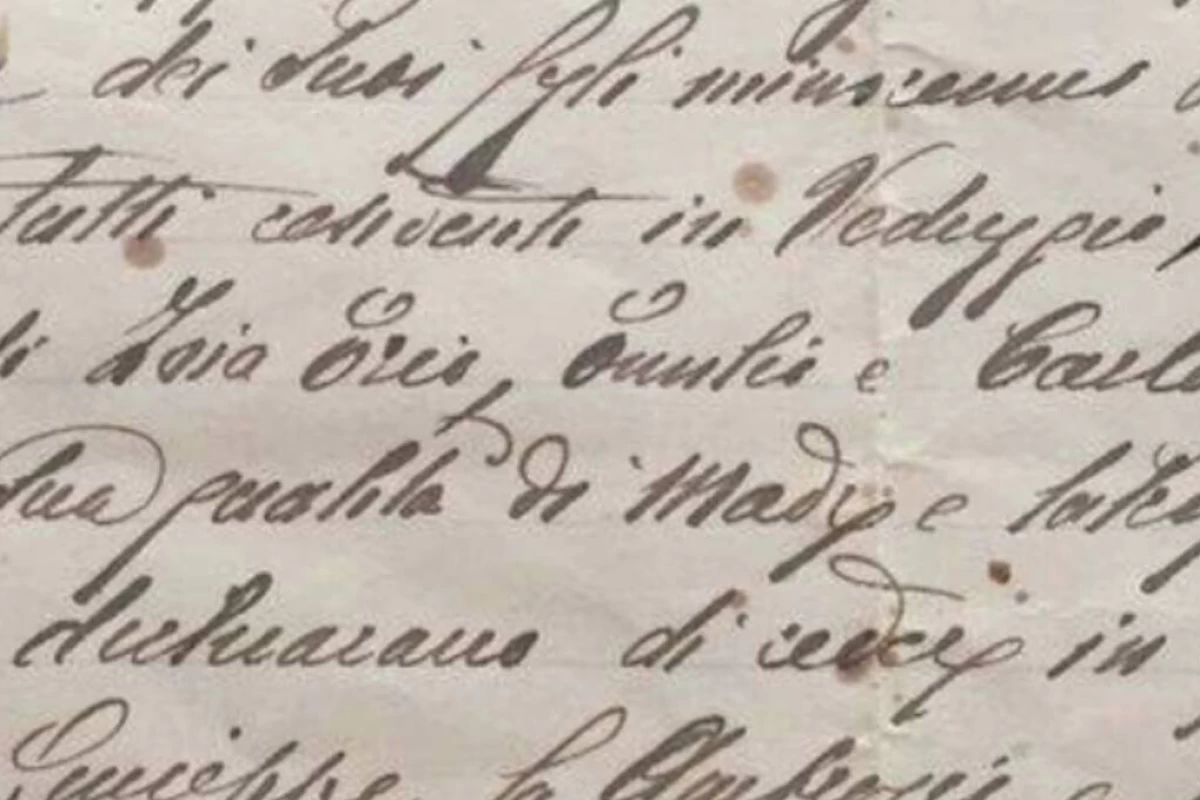 dei suoi figli minorenni
tutti residenti in Vedeggio,
e Carl
sua qualità di Madre e
dichiarano di cedere in
Giuseppe fu Ambrogio e